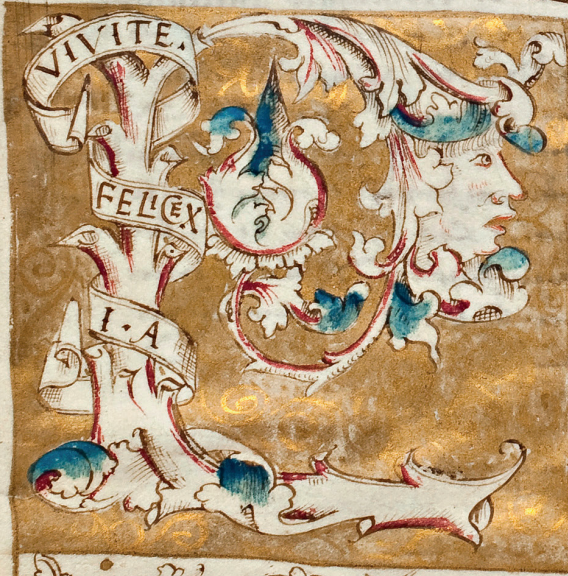 VIVITE.
FELICEX
I·A